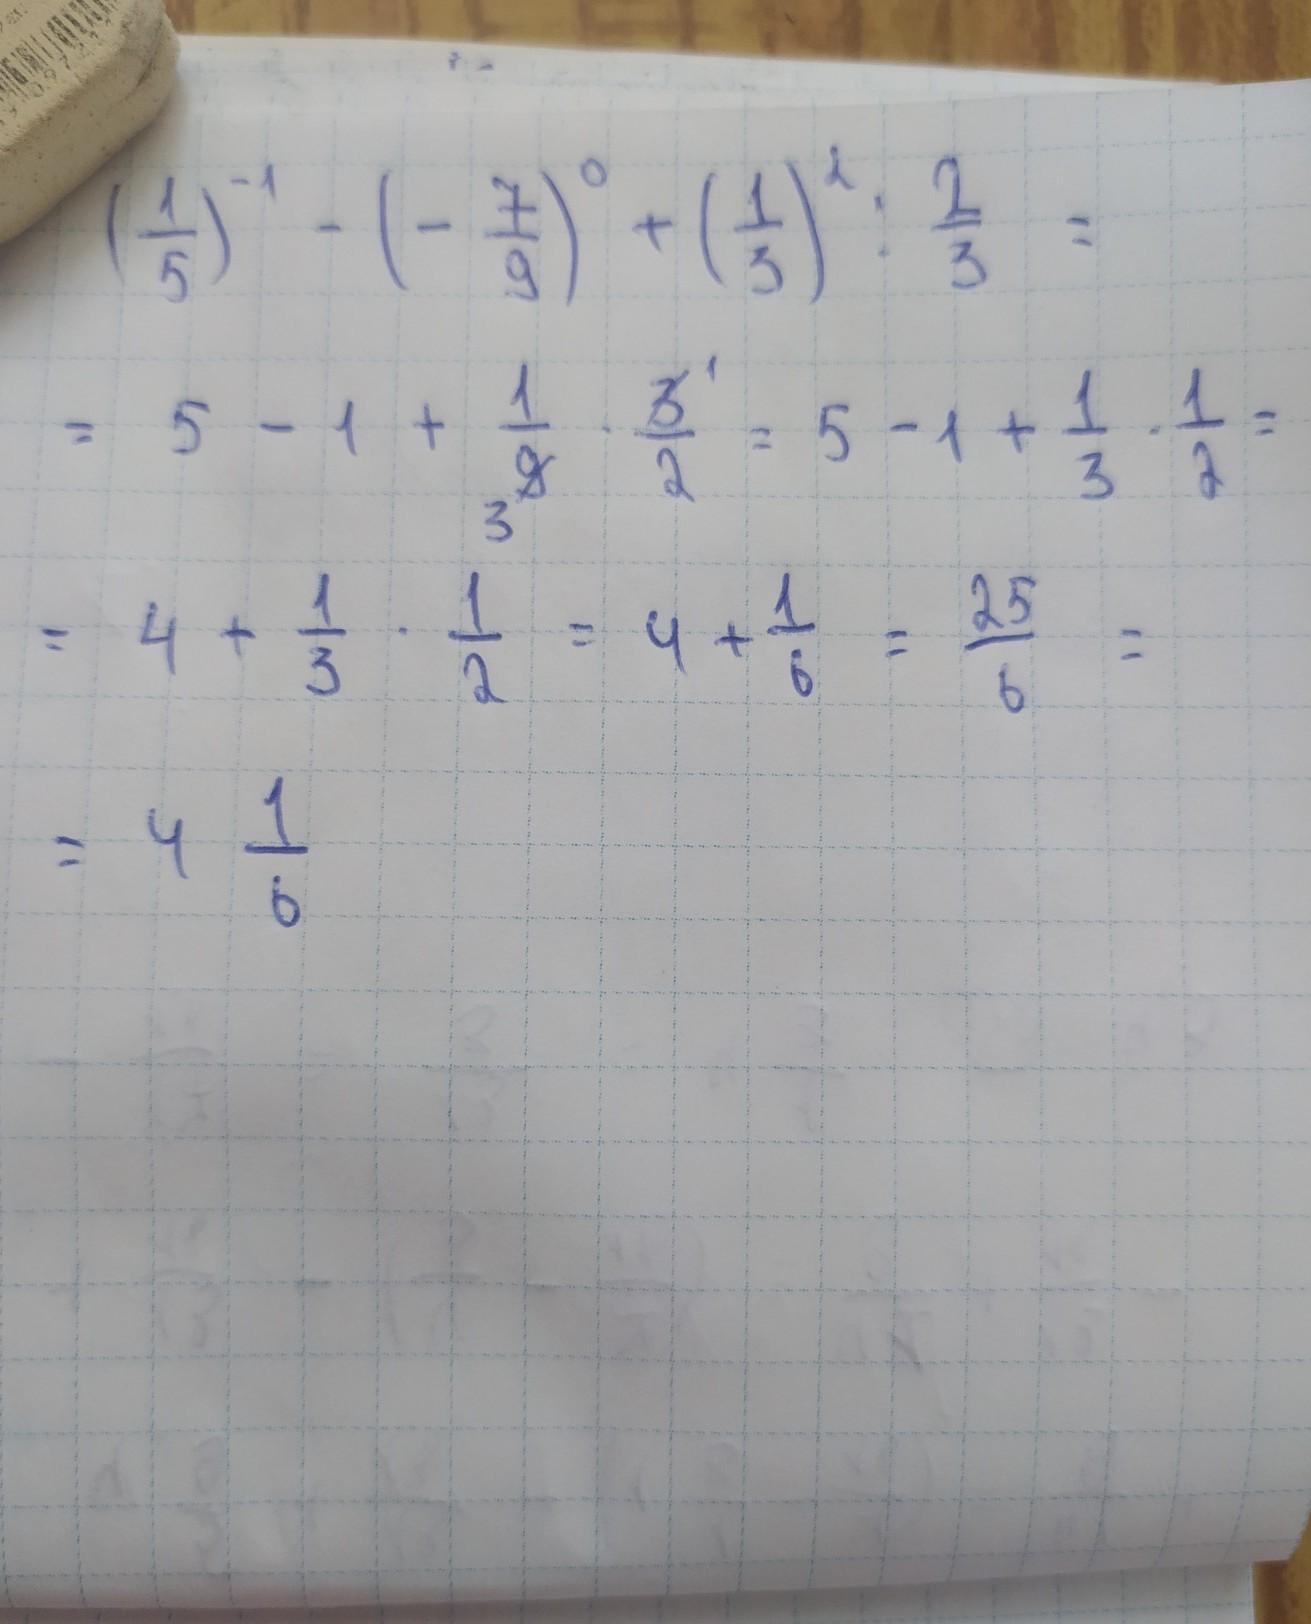 (1/5)^-1 - (- 7/9)^0 + (1/3)^2 : 2/3 =
= 5 - 1 + 1/9 3 · 3/2 1 = 5 - 1 + 1/3 · 1/2 =
= 4 + 1/3 · 1/2 = 4 + 1/6 = 25/6 =
= 4 1/6